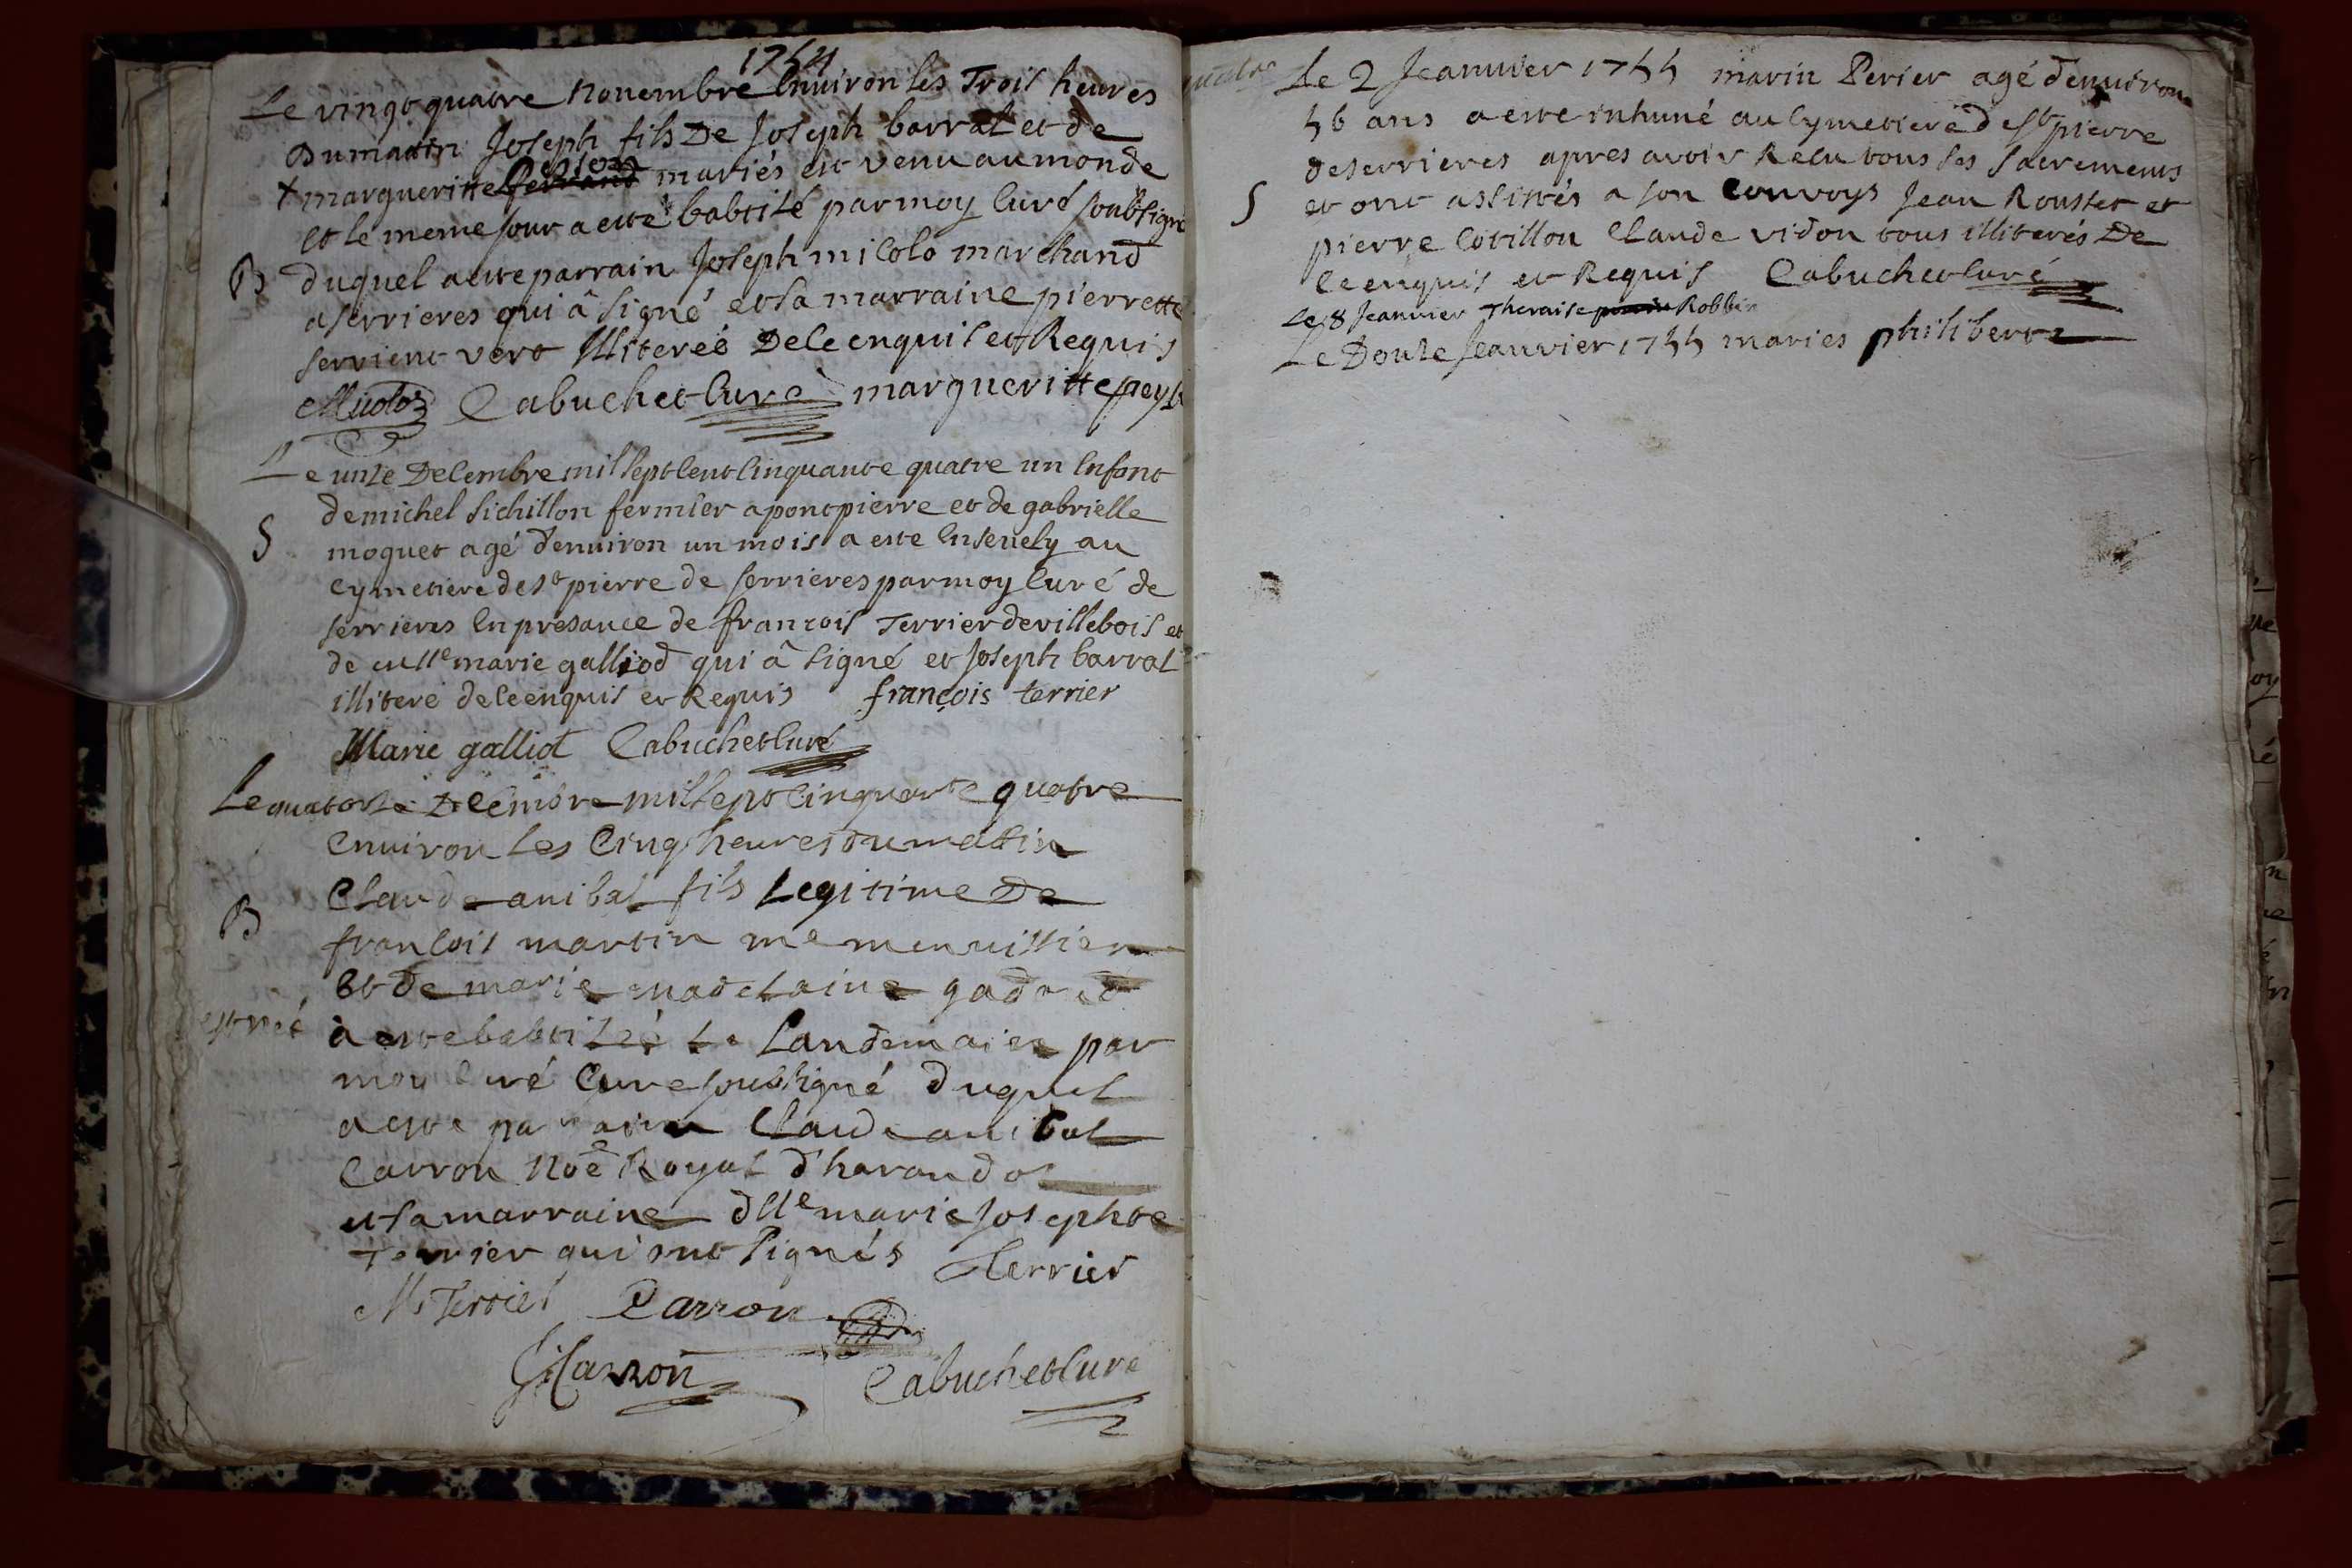 1754
Le vingt quatre Novembre Environ les Trois heures
Du matin Joseph fils De Joseph barral et de
+ margueritte mariés est venu au monde
et le meme jour a esté babtisé par moy Curé soubsigné
B duquel a este parrain Joseph micolo marchand
a serrieres qui â signé et sa marraine pierrette
servient vert Illiterée De le enquis et Requis
Micoloz Cabuchet Curé margueritte
Le unze Decembre mil sept Cent Cinquante quatre un Enfant
de michel sichillon fermier a pont pierre et de gabrielle
S moquet agé d'enuiron un mois a este Ensevely au
Cymetiere de St pierre de serrieres par moy Curé de
serrieres En presance de francois Terrier de villebois et
de mlle marie galliod qui â signé et Joseph barral
illiteré de le enquis et Requis françois terrier
Marie galliot Cabuchet Curé
Le quatorze Decembre mil sept Cinquante quatre
Enuiron les Cinq heures du mattin
Claude anibal fils Legitime De
B francois martin me menuissier
Et de marie madelaine
est né à este babtisé Le Landemain par
moy Curé Curé soubsigné duquel
a este parrain Claude anibal
Carron Noe Royal d'harandos
et sa marraine dlle marie Josephte
Terrier qui ont signés Terrier
M Terrier Carron
Carron Cabuchet Curé
Le 2 Jeanuier 1755 marin Perier agé d'enuiron
56 ans a este inhumé au Cymetiere de St pierre
de serrieres apres avoir Recu tous ses sacrements
S et ont assistés a son Convoys Jean Rouslet et
pierre Cotillon Claude vidon tous illiterés De
le enquis et Requis Cabuchet Curé
Le 8 Jeanuier Theraise Robbin
Le Douze Jeanvier 1755 maries philiberte